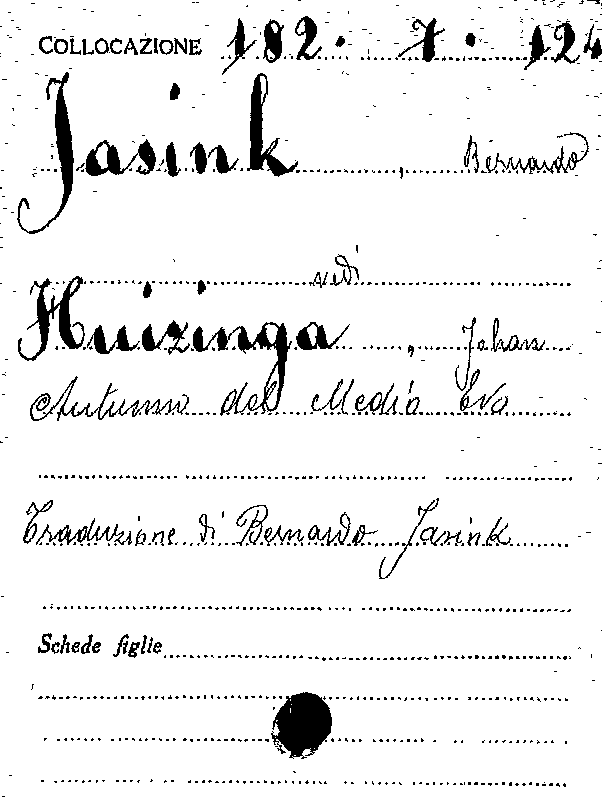 COLLOCAZIONE 182. 7. 124
Jasink, Bernardo
vedi
Huizinga, Johan
Autunno del Medio Evo
Traduzione di Bernardo Jasink
Schede figlie